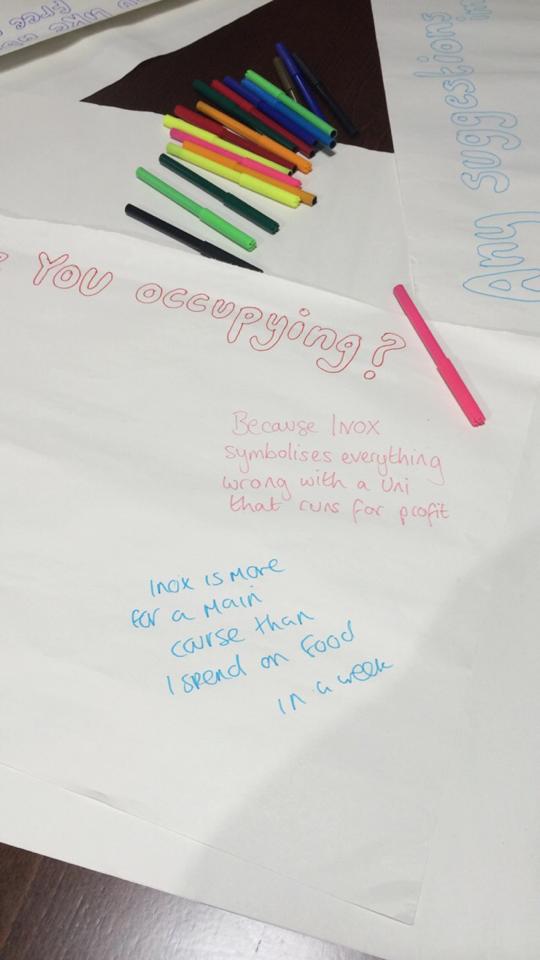 YOU OCCUPYING?
Because INOX
symbolises everything
wrong with a Uni
that runs for profit
Inox is more
for a main
course than
I spend on food
in a week
Any suggestions